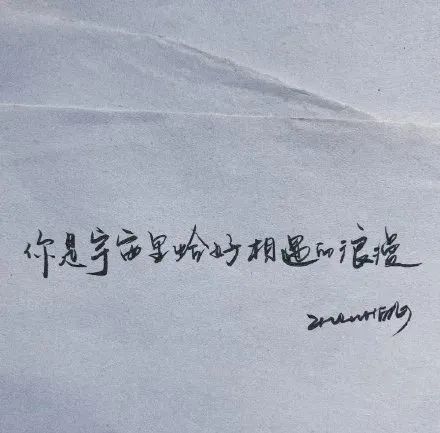 你是宇宙里恰好相遇的浪漫